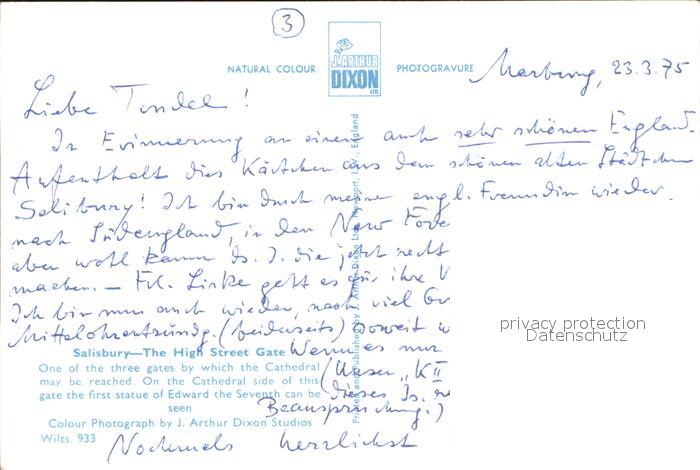 3
NATURAL COLOUR
J. ARTHUR
DIXON
LTD
PHOTOGRAVURE
Marburg, 23.3.75
Liebe Tundel!
In Erinnerung an einen auch sehr schönen England-
Aufenthalt dies Kärtchen aus dem schönen alten Städtchen
Salisbury! Ich bin durch meine engl. Freundin wieder
nach Südengland, in den New Fore
aber wohl kaum ds. J. die jetzt recht
machen. – Frl. Linke geht es für ihre V
Ich bin nun auch wieder, nach viel Gr
Mittelohrentzündg. (beiderseits) soweit w
Wenn es nur
(Unser „K II
dieses Js.
Beanspruchung.)
Nochmals herzlichst
Salisbury—The High Street Gate
One of the three gates by which the Cathedral
may be reached. On the Cathedral side of this
gate the first statue of Edward the Seventh can be
seen
Colour Photograph by J. Arthur Dixon Studios
Wilts. 933
Printed and Published by J. Arthur Dixon Ltd., Newport, I.W., England
privacy protection
Datenschutz